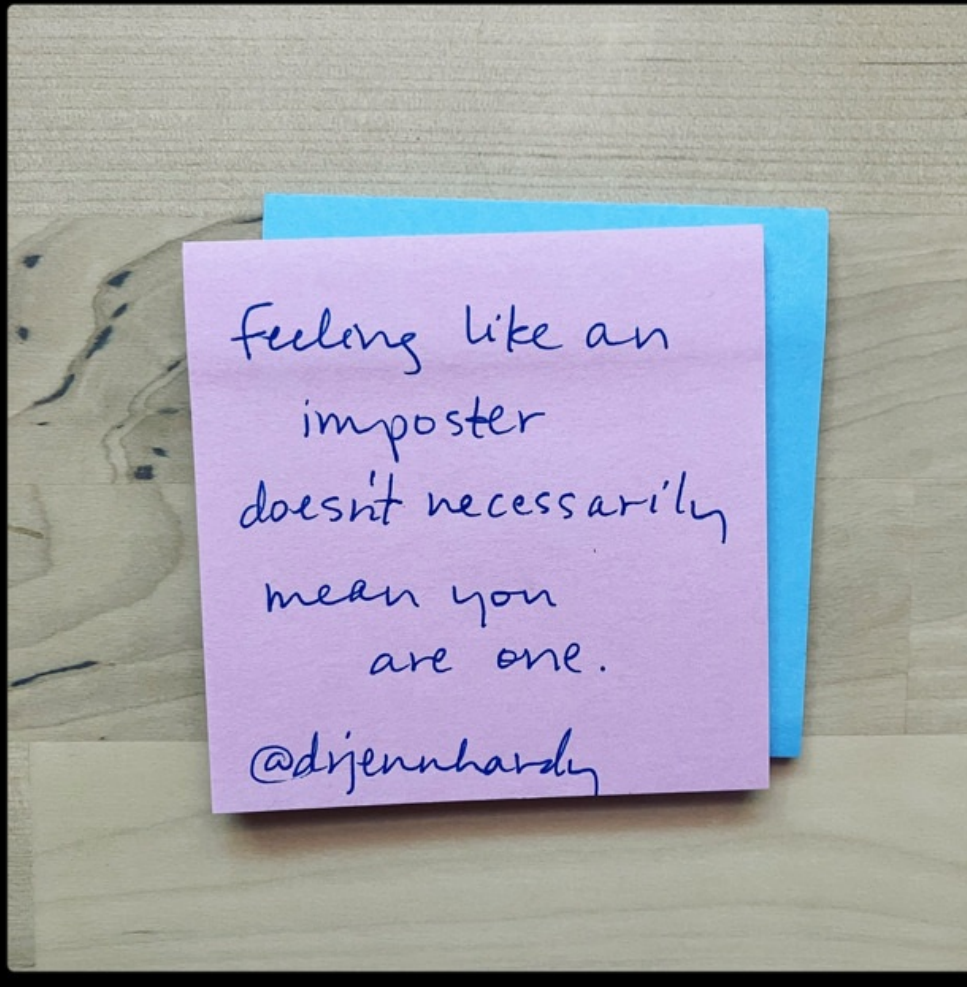 feeling like an
imposter
doesn't necessarily
mean you
are one.
@drjennhardy